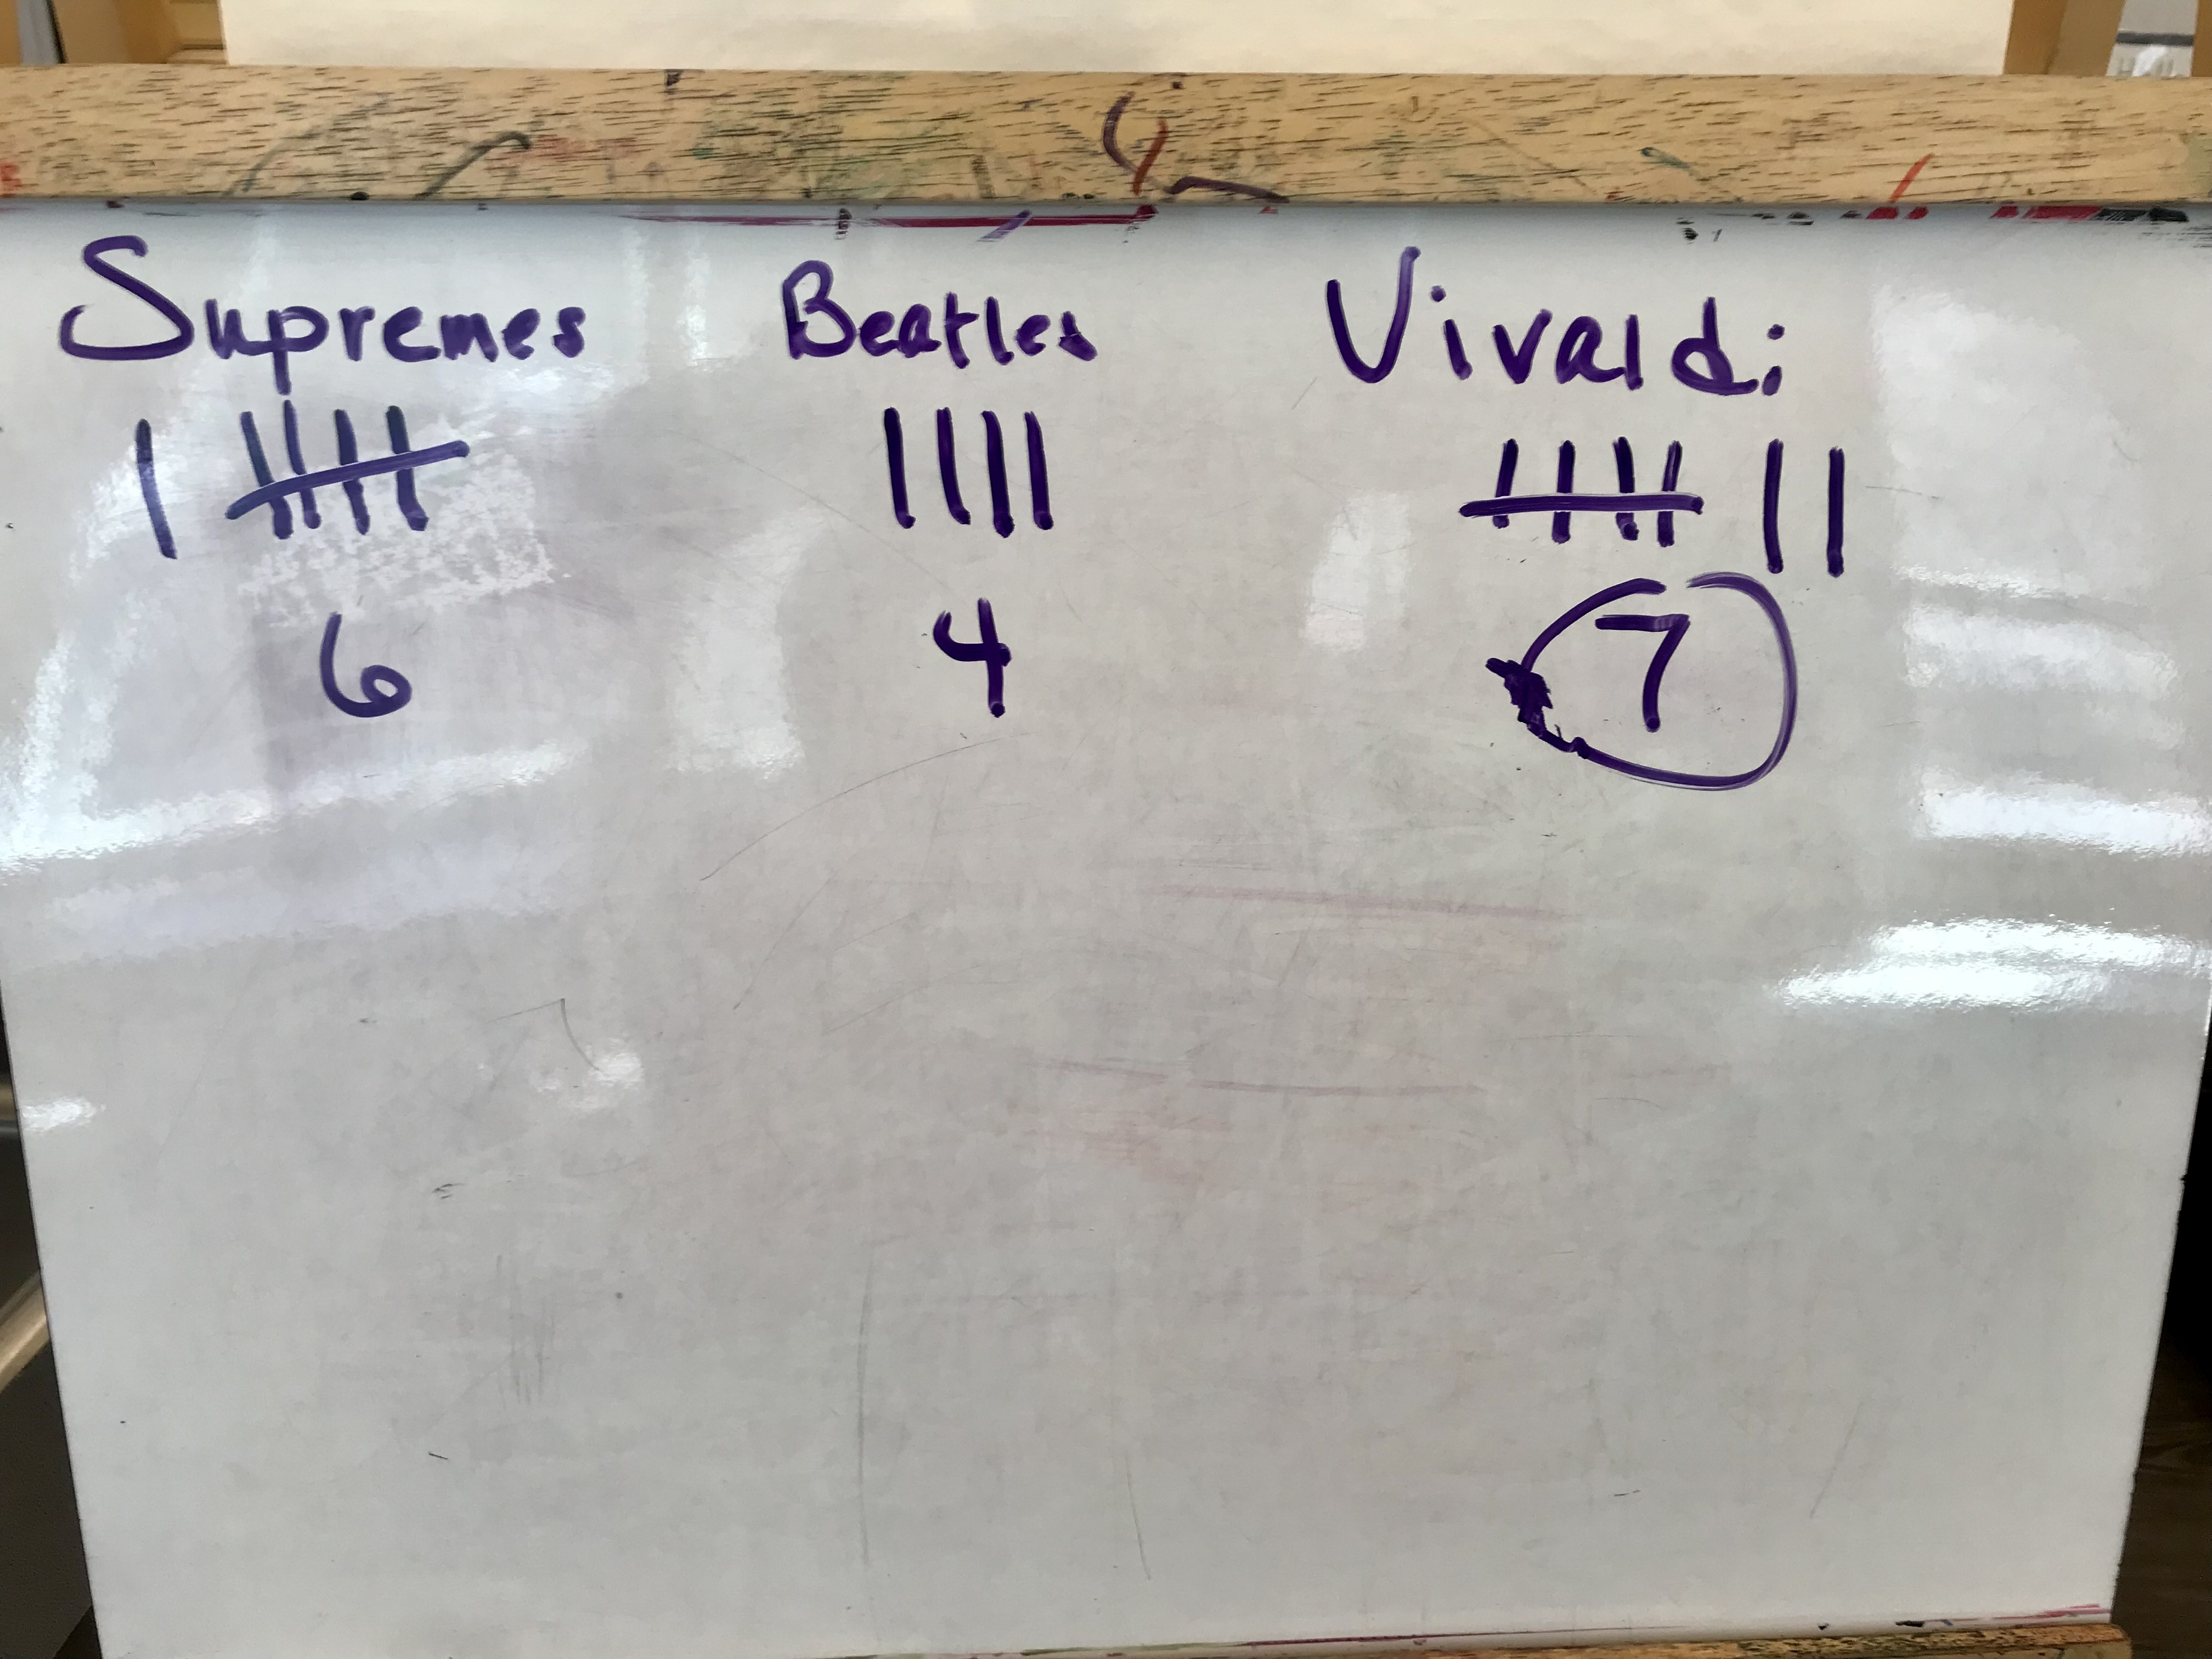 Supremes Beatles Vivaldi
6 4 7